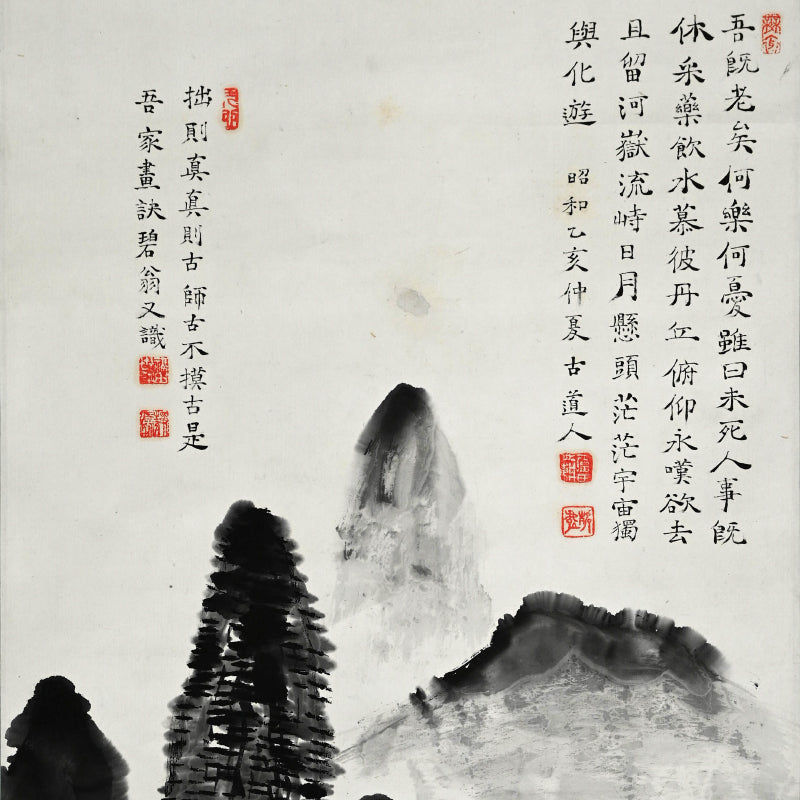 吾既老矣何樂何憂雖曰未死人事既
休采藥飲水慕彼丹丘俯仰永嘆欲去
且留河嶽流峙日月懸頭茫茫宇宙獨
與化遊 昭和乙亥仲夏 古道人
拙則真真則古師古不摸古是
吾家畫訣碧翁又識